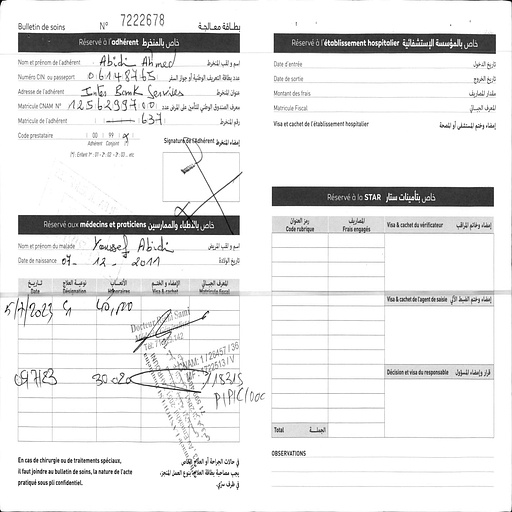 Bulletin de soins N° 7222678 بطاقة معالجة
Réservé à l'adhérent خاص بالمنخرط
Nom et prénom de l'adhérent Abidi Ahmed اسم و لقب المنخرط
Numéro CIN ou passeport 06148765 عدد بطاقة التعريف الوطنية أو جواز السفر
Adresse de l'adhérent Inter Bank Services عنوان المنخرط
Matricule CNAM N°
Matricule de l'adhérent 637 رقم المنخرط
Code prestataire 00 99
Adhérent Conjoint (*)
(*) : Enfant 1er : 01 - 2e : 02 - 3e : 03 ... etc
Signature de l'adhérent إمضاء المنخرط
Réservé aux médecins et praticiens خاص بالأطباء والممارسين
Nom et prénom du malade Youssef Abidi اسم و لقب المريض
Date de naissance 07 - 12 - 2011 تاريخ الولادة
تاريخ نوعية العلاج الأتعاب الإمضاء و الختم المعرف الجبائي
Date Désignation Honoraires Visa & cachet Matricule fiscal
5/7/2023
30.020
En cas de chirurgie ou de traitements spéciaux,
il faut joindre au bulletin de soins, la nature de l'acte
pratiqué sous pli confidentiel.
في حالات الجراحة أو العلاج الخاص
يجب مصاحبة بطاقة العلاج بنوع العمل المنجز،
في ظرف سري.
Réservé à l'établissement hospitalier خاص بالمؤسسة الإستشفائية
Date d'entrée تاريخ الدخول
Date de sortie تاريخ الخروج
Montant des frais مقدار المصاريف
Matricule Fiscal المعرف الجبائي
Visa et cachet de l'établissement hospitalier إمضاء وختم المستشفى أو المصحة
Réservé à la STAR خاص بتأمينات ستار
رمز العنوان المصاريف
Code rubrique Frais engagés
Visa & cachet du vérificateur إمضاء وختم المراقب
Visa & cachet de l'agent de saisie إمضاء وختم الضبط الآلي
Décision et visa du responsable قرار وإمضاء المسؤول
Total الجملة
OBSERVATIONS